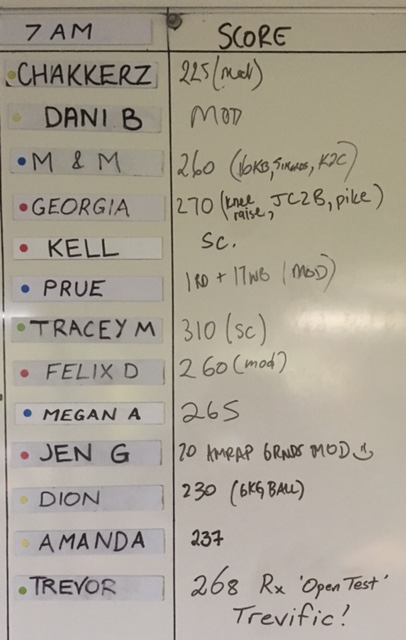 7 AM SCORE
CHAKKERZ 225 (mod)
DANI B MOD
M & M 260 (16KB, K2C)
GEORGIA 270 (knee raise, JC2B, pike)
KELL SC.
PRUE 1RD + 17WB (MOD)
TRACEY M 310 (SC)
FELIX D 260 (mod)
MEGAN A 265
JEN G 20 AMRAP 6RNDS MOD
DION 230 (6KG BALL)
AMANDA 237
TREVOR 268 Rx 'Open Test'
Trevific!